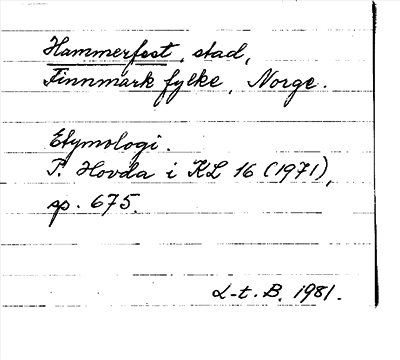 Hammerfest, stad,
Finnmark fylke, Norge.
Etymologi.
P. Hovda i KL 16 (1971),
sp. 675.
L-t. B. 1981.